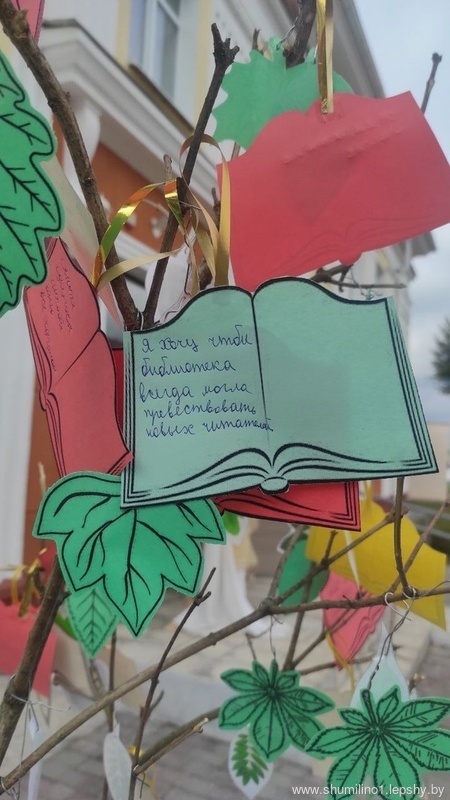 я хочу чтобы
библиотека
всегда могла
превествовать
новых читателей
www.shumilino1.lepshy.by